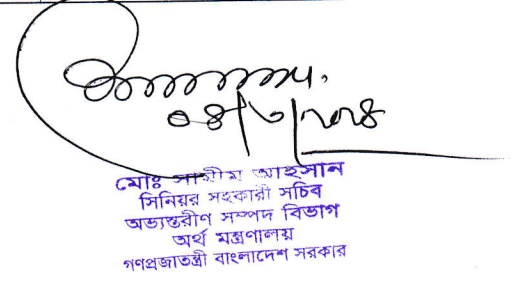 ০৪/৩/২০২৪
মোঃ সামীম আহসান
সিনিয়র সহকারী সচিব
অভ্যন্তরীণ সম্পদ বিভাগ
অর্থ মন্ত্রণালয়
গণপ্রজাতন্ত্রী বাংলাদেশ সরকার